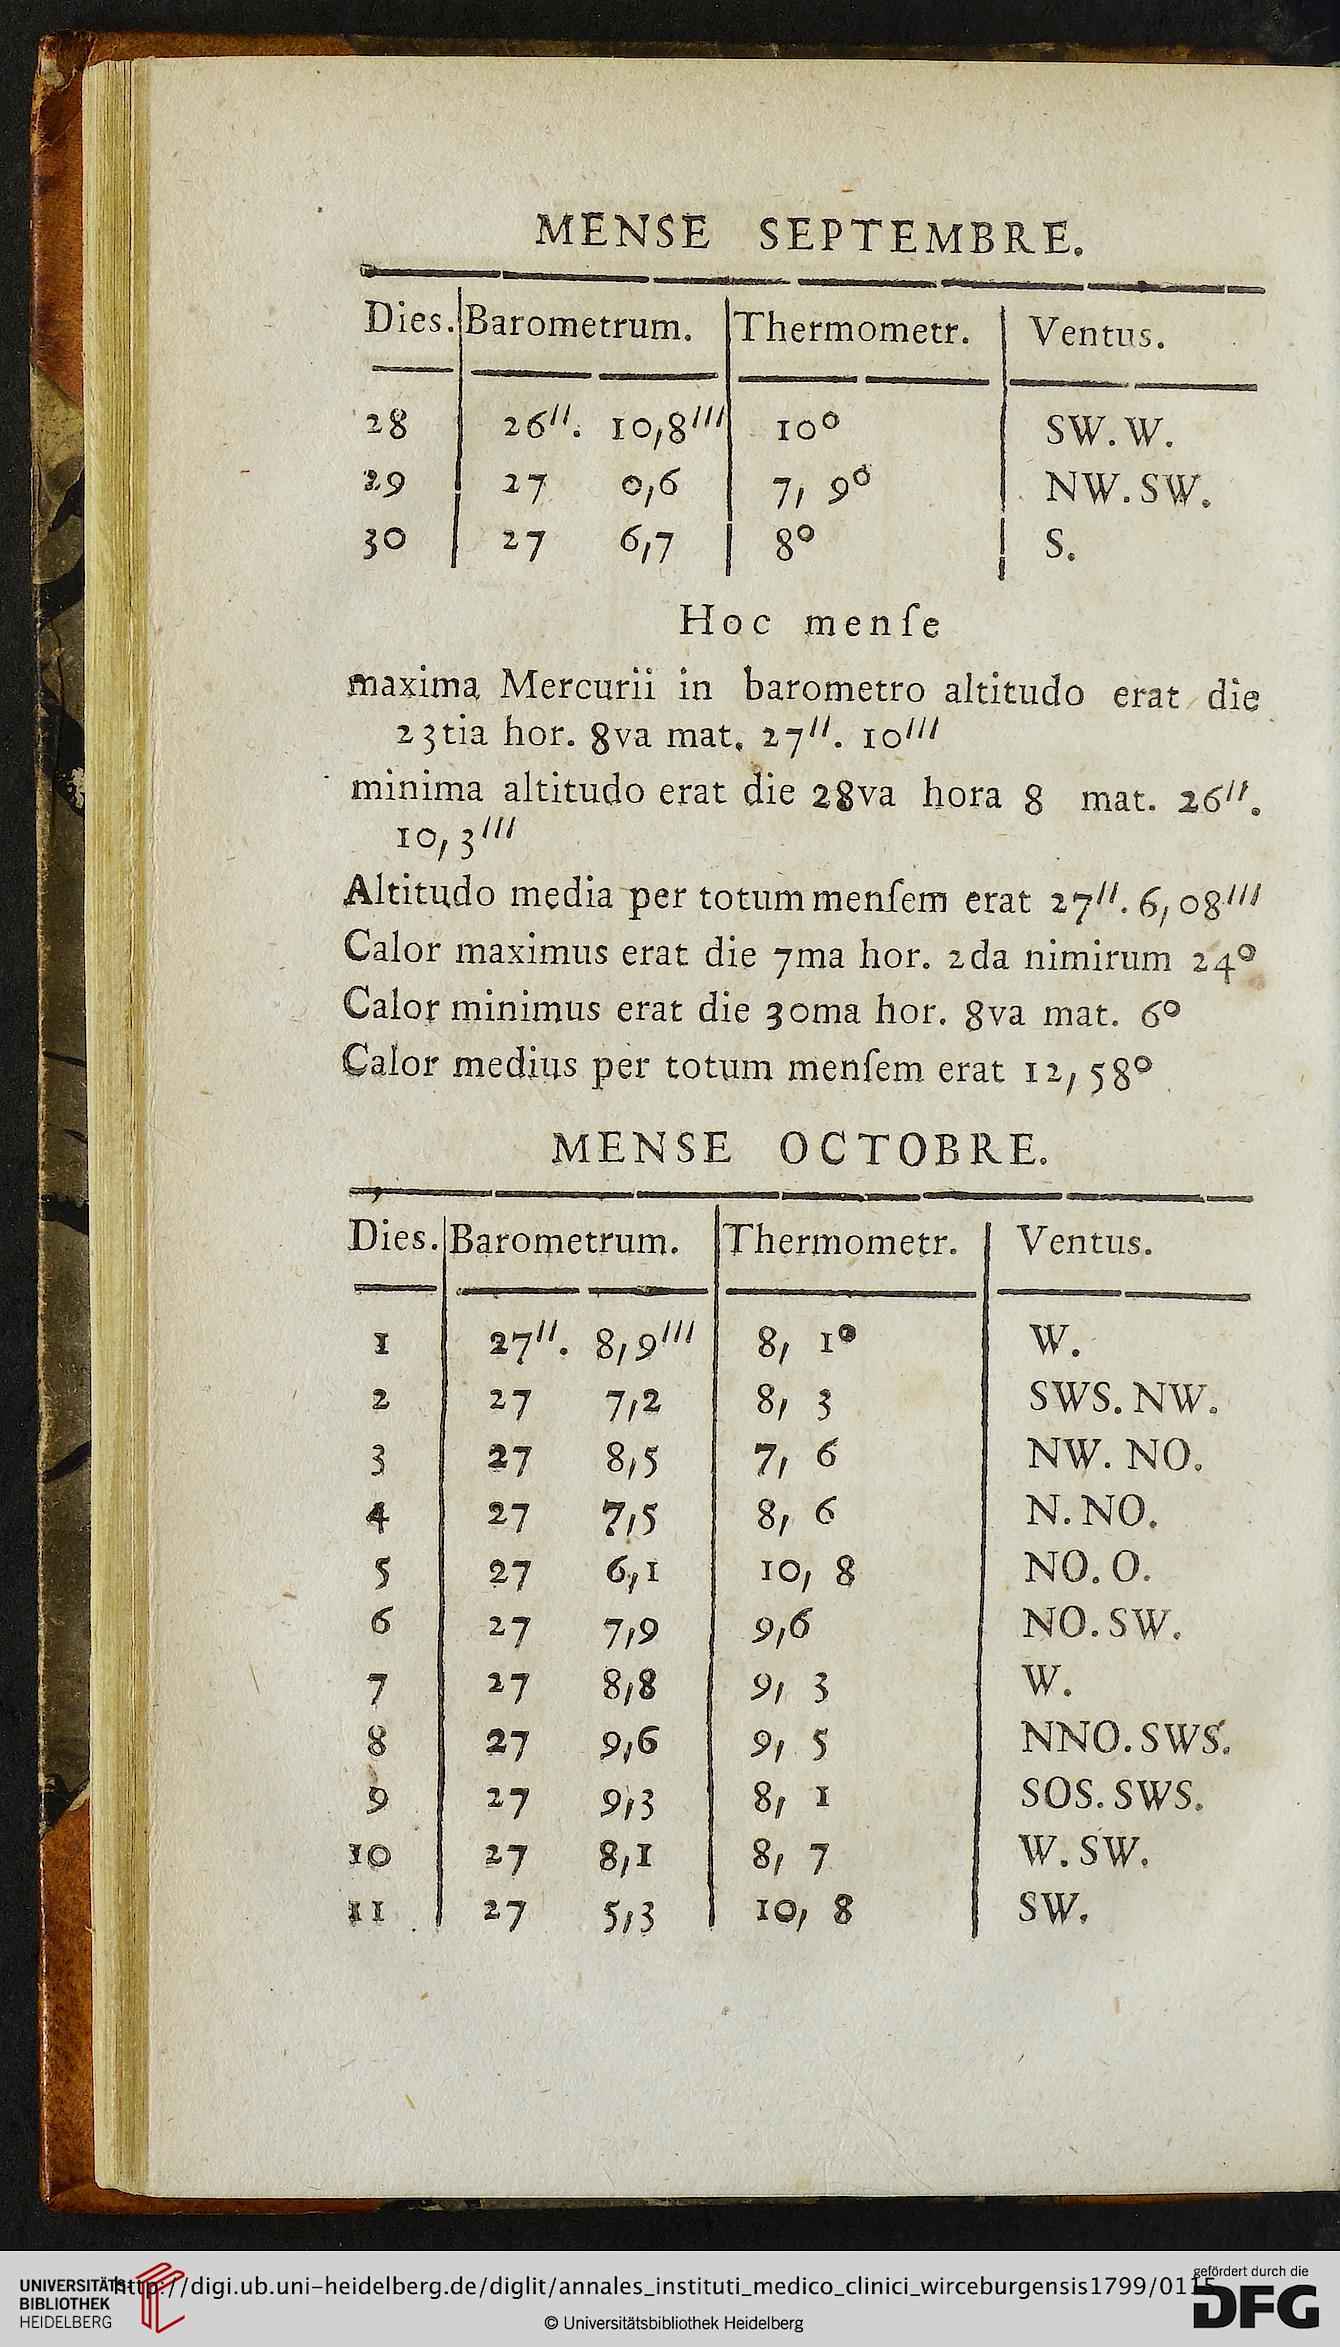 MENSE SEPTEMBRE.
Dies. Barometrum. Thermometr. Ventus.
28 26′′. 10,8′′′ 10° SW. W.
29 27 0,6 7, 9° NW. SW.
30 27 6,7 8° S.
Hoc menſe
maxima Mercurii in barometro altitudo erat die
23tia hor. 8va mat. 27′′. 10′′′
minima altitudo erat die 28va hora 8 mat. 26′′.
10, 3′′′
Altitudo media per totum menſem erat 27′′. 6, 08′′′
Calor maximus erat die 7ma hor. 2da nimirum 24°
Calor minimus erat die 30ma hor. 8va mat. 6°
Calor medius per totum menſem erat 12, 58°
MENSE OCTOBRE.
Dies. Barometrum. Thermometr. Ventus.
1 27′′. 8,9′′′ 8, 1° W.
2 27 7,2 8, 3 SWS. NW.
3 27 8,5 7, 6 NW. NO.
4 27 7,5 8, 6 N. NO.
5 27 6,1 10, 8 NO. O.
6 27 7,9 9,6 NO. SW.
7 27 8,8 9, 3 W.
8 27 9,6 9, 5 NNO. SWS.
9 27 9,3 8, 1 SOS. SWS.
10 27 8,1 8, 7 W. SW.
11 27 5,3 10, 8 SW.
UNIVERSITÄTS-
BIBLIOTHEK
HEIDELBERG
http://digi.ub.uni-heidelberg.de/diglit/annales_instituti_medico_clinici_wirceburgensis1799/0115
© Universitätsbibliothek Heidelberg
gefördert durch die
DFG